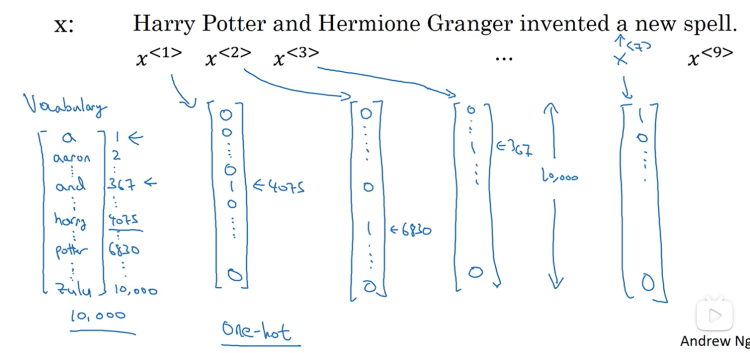 x: Harry Potter and Hermione Granger invented a new spell.
x<1> x<2> x<3> ... x<7> x<9>
Vocabulary
a 1 ←
aaron 2
⋮ ⋮
and 367 ←
⋮ ⋮
harry 4075
⋮ ⋮
potter 6830
⋮ ⋮
zulu 10,000
10,000
0
0
⋮
0
1 ←4075
0
⋮
0
0
⋮
0
1 ←6830
⋮
0
0
⋮
1 ←367
⋮
0
10,000
1
0
⋮
0
One-hot
Andrew Ng